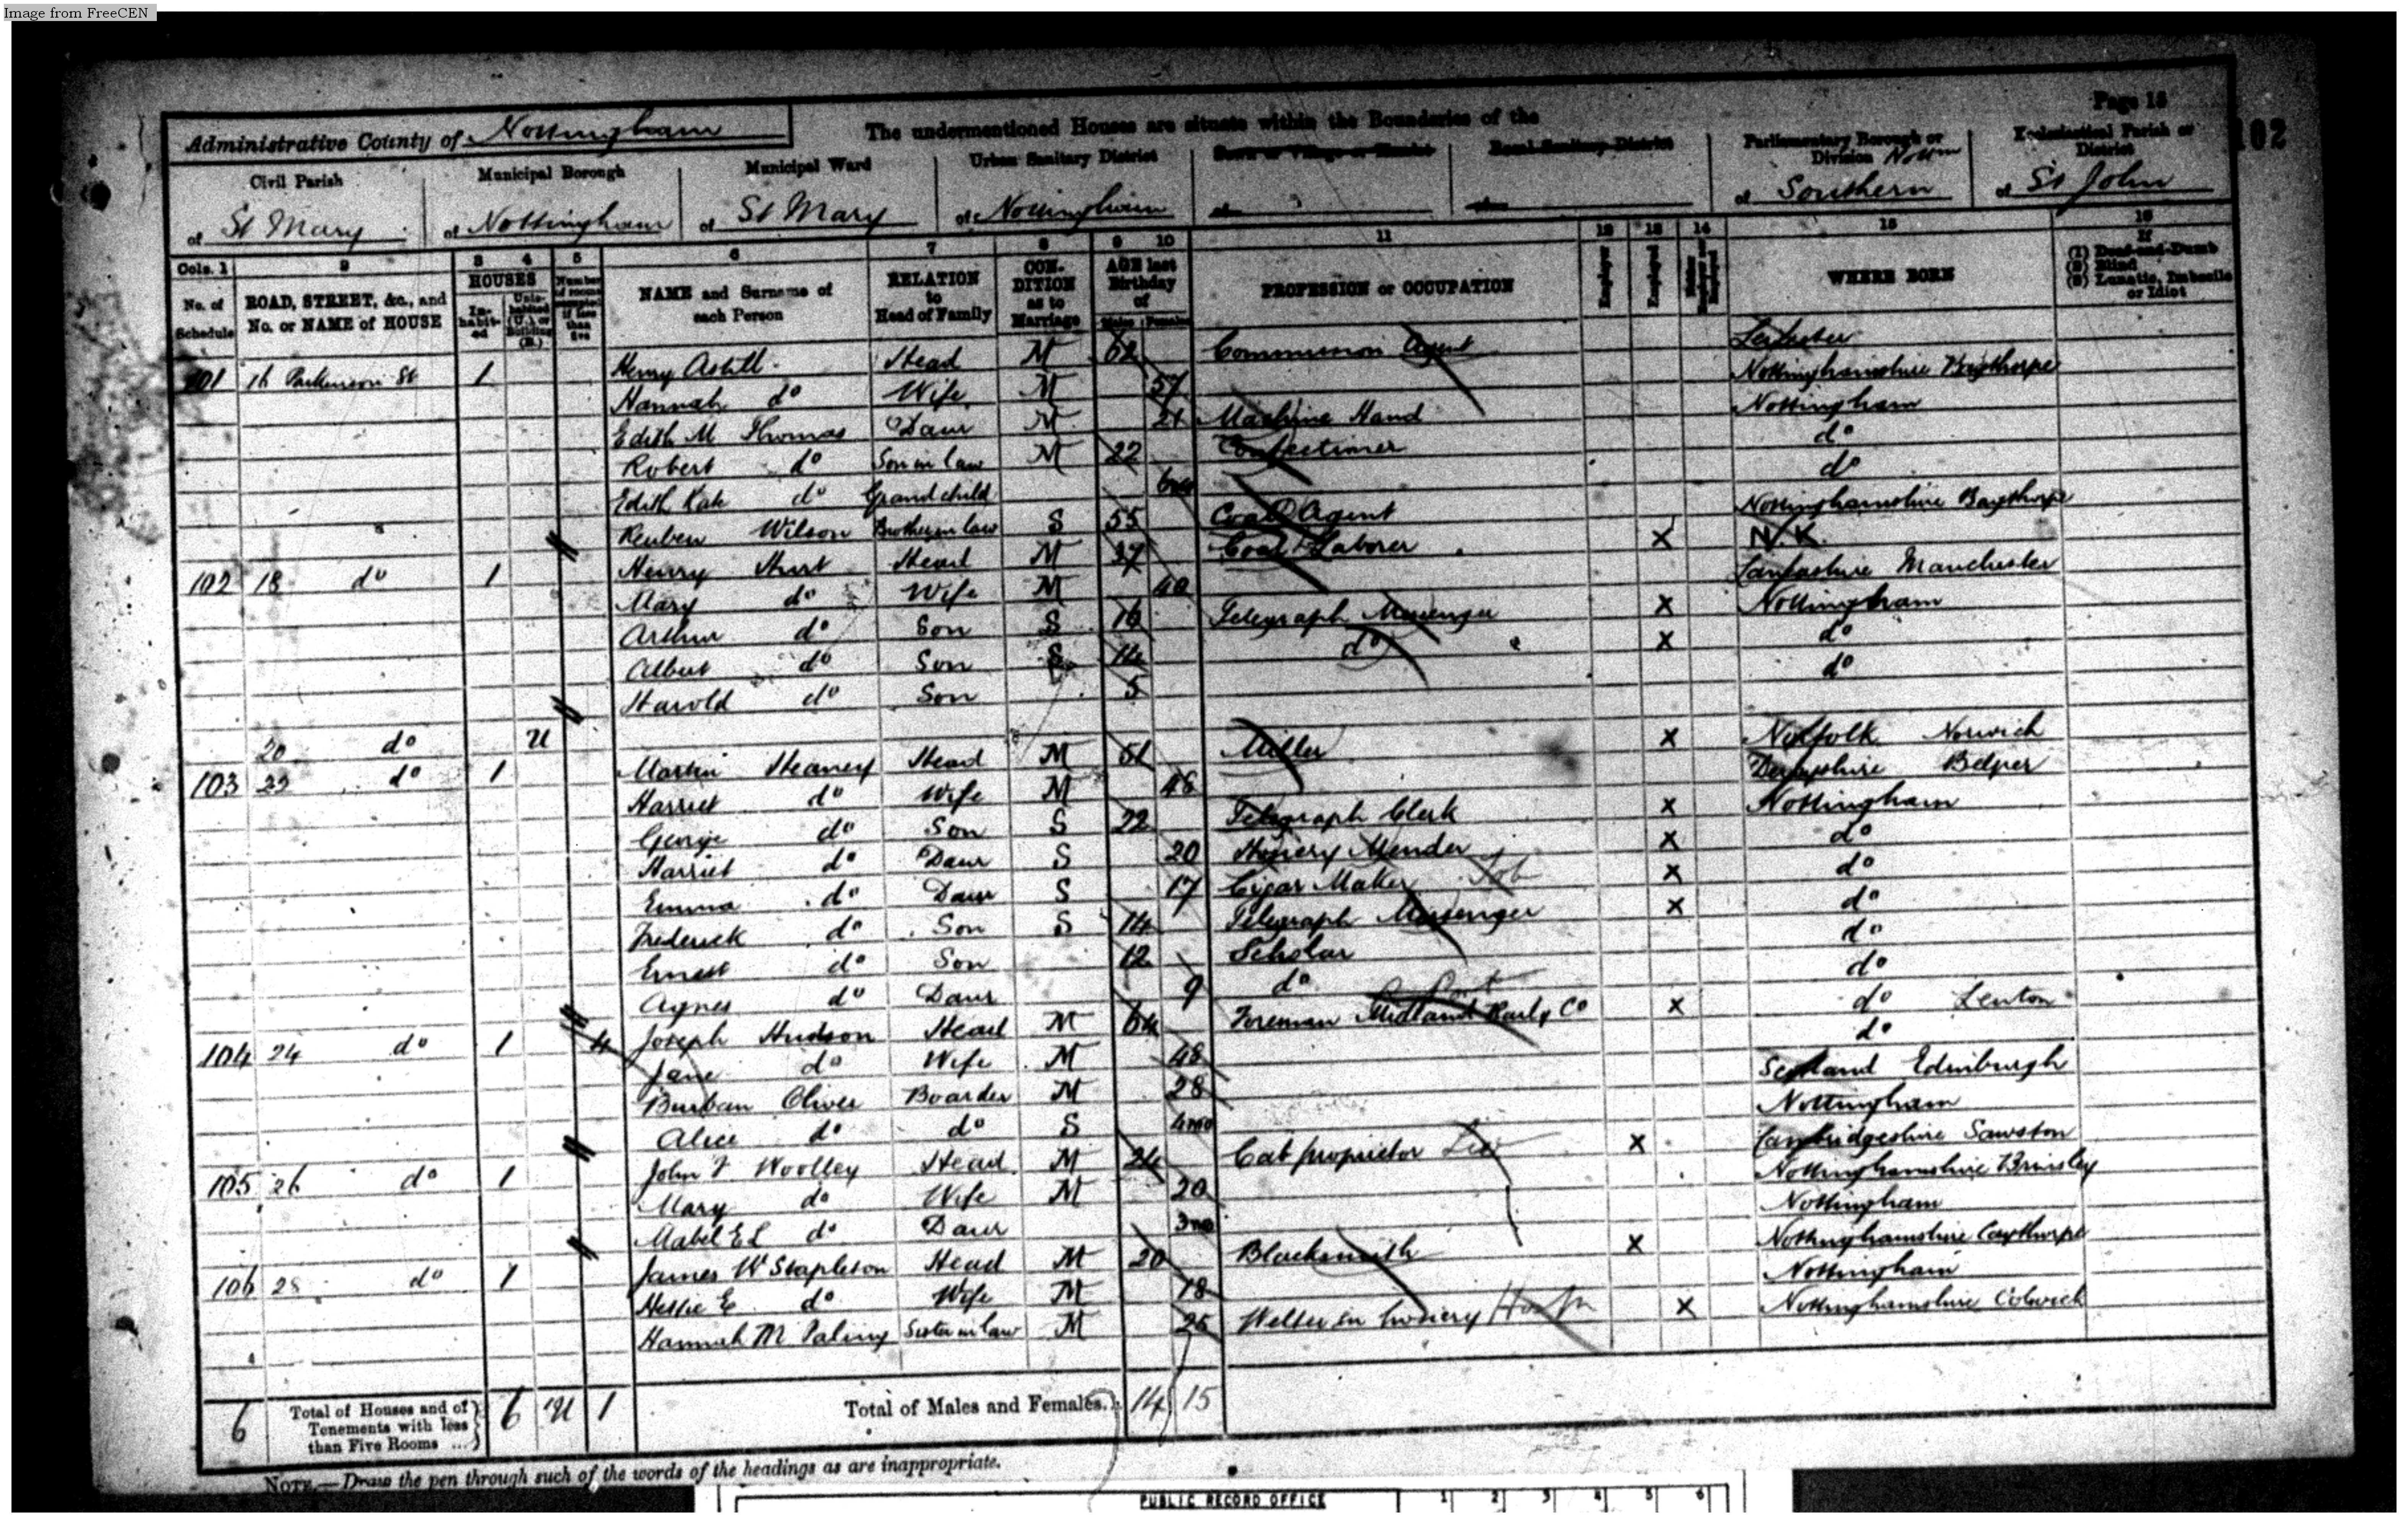 Image from FreeCEN
Page 15
102
Administrative County of Nottingham
The undermentioned Houses are situate within the Boundaries of the
Civil Parish
Municipal Borough
Municipal Ward
Urban Sanitary District
Town or Village or Hamlet
Rural Sanitary District
Parliamentary Borough or Division Nottm
Ecclesiastical Parish or District
of St Mary
of Nottingham
of St Mary
of Nottingham
of
of
of Southern
of St John
Cols. 1 2 3 4 5 6 7 8 9 10 11 12 13 14 15 16
No. of Schedule
ROAD, STREET, &c., and No. or NAME of HOUSE
HOUSES
In-habit-ed
Unin-habited (U.), or Building (B.)
Number of rooms occupied if less than five
NAME and Surname of each Person
RELATION to Head of Family
CON-DITION as to Marriage
AGE last Birthday of
Males Females
PROFESSION or OCCUPATION
Employer
Employed
Neither Employer nor Employed
WHERE BORN
If
(1) Deaf-and-Dumb
(2) Blind
(3) Lunatic, Imbecile or Idiot
101 16 Parkinson St 1 Henry Astill Head M 62 Commission Agent Leicester
Hannah do Wife M 57 Nottinghamshire
Edith M Thomas Daur M 21 Machine Hand Nottingham
Robert do Son in law M 22 Confectioner do
Edith Kate do Grandchild 6mo do
Reuben Wilson Brother in law S 55 Coal Agent Nottinghamshire
102 18 do 1 Henry Hurt Head M 37 Coal Laborer X N.K.
Mary do Wife M 40 Lancashire Manchester
Arthur do Son S 16 Telegraph Messenger X Nottingham
Albert do Son S 14 do X do
Harold do Son 5 do
20 do U
103 22 do 1 Martin Heanery Head M 51 Miller X Norfolk Norwich
Harriet do Wife M 46 Derbyshire Belper
George do Son S 22 Telegraph Clerk X Nottingham
Harriet do Daur S 20 Hosiery Mender X do
Emma do Daur S 17 Cigar Maker Tob X do
Frederick do Son S 14 Telegraph Messenger X do
Ernest do Son 12 Scholar do
Agnes do Daur 9 do do
104 24 do 1 4 Joseph Hudson Head M 64 Foreman Midland Raily Co X do Lenton
Jane do Wife M 48 do
Burban Oliver Boarder M 28 Scotland Edinburgh
Alice do do S 4mo Nottingham
105 26 do 1 John F Woolley Head M 24 Cab proprietor X Cambridgeshire Sawston
Mary do Wife M 20 Nottinghamshire Brinsley
Mabel E L do Daur 3mo Nottingham
106 28 do 1 James W Stapleton Head M 20 Blacksmith X Nottinghamshire Caythorpe
Hessie E do Wife M 18 Nottingham
Hannah M Paling Sister in law M 25 Welter in hosiery X Nottinghamshire Colwick
6 Total of Houses and of Tenements with less than Five Rooms ... 6 U 1 Total of Males and Females... 14 15
NOTE.—Draw the pen through such of the words of the headings as are inappropriate.
PUBLIC RECORD OFFICE 1 2 3 4 5 6